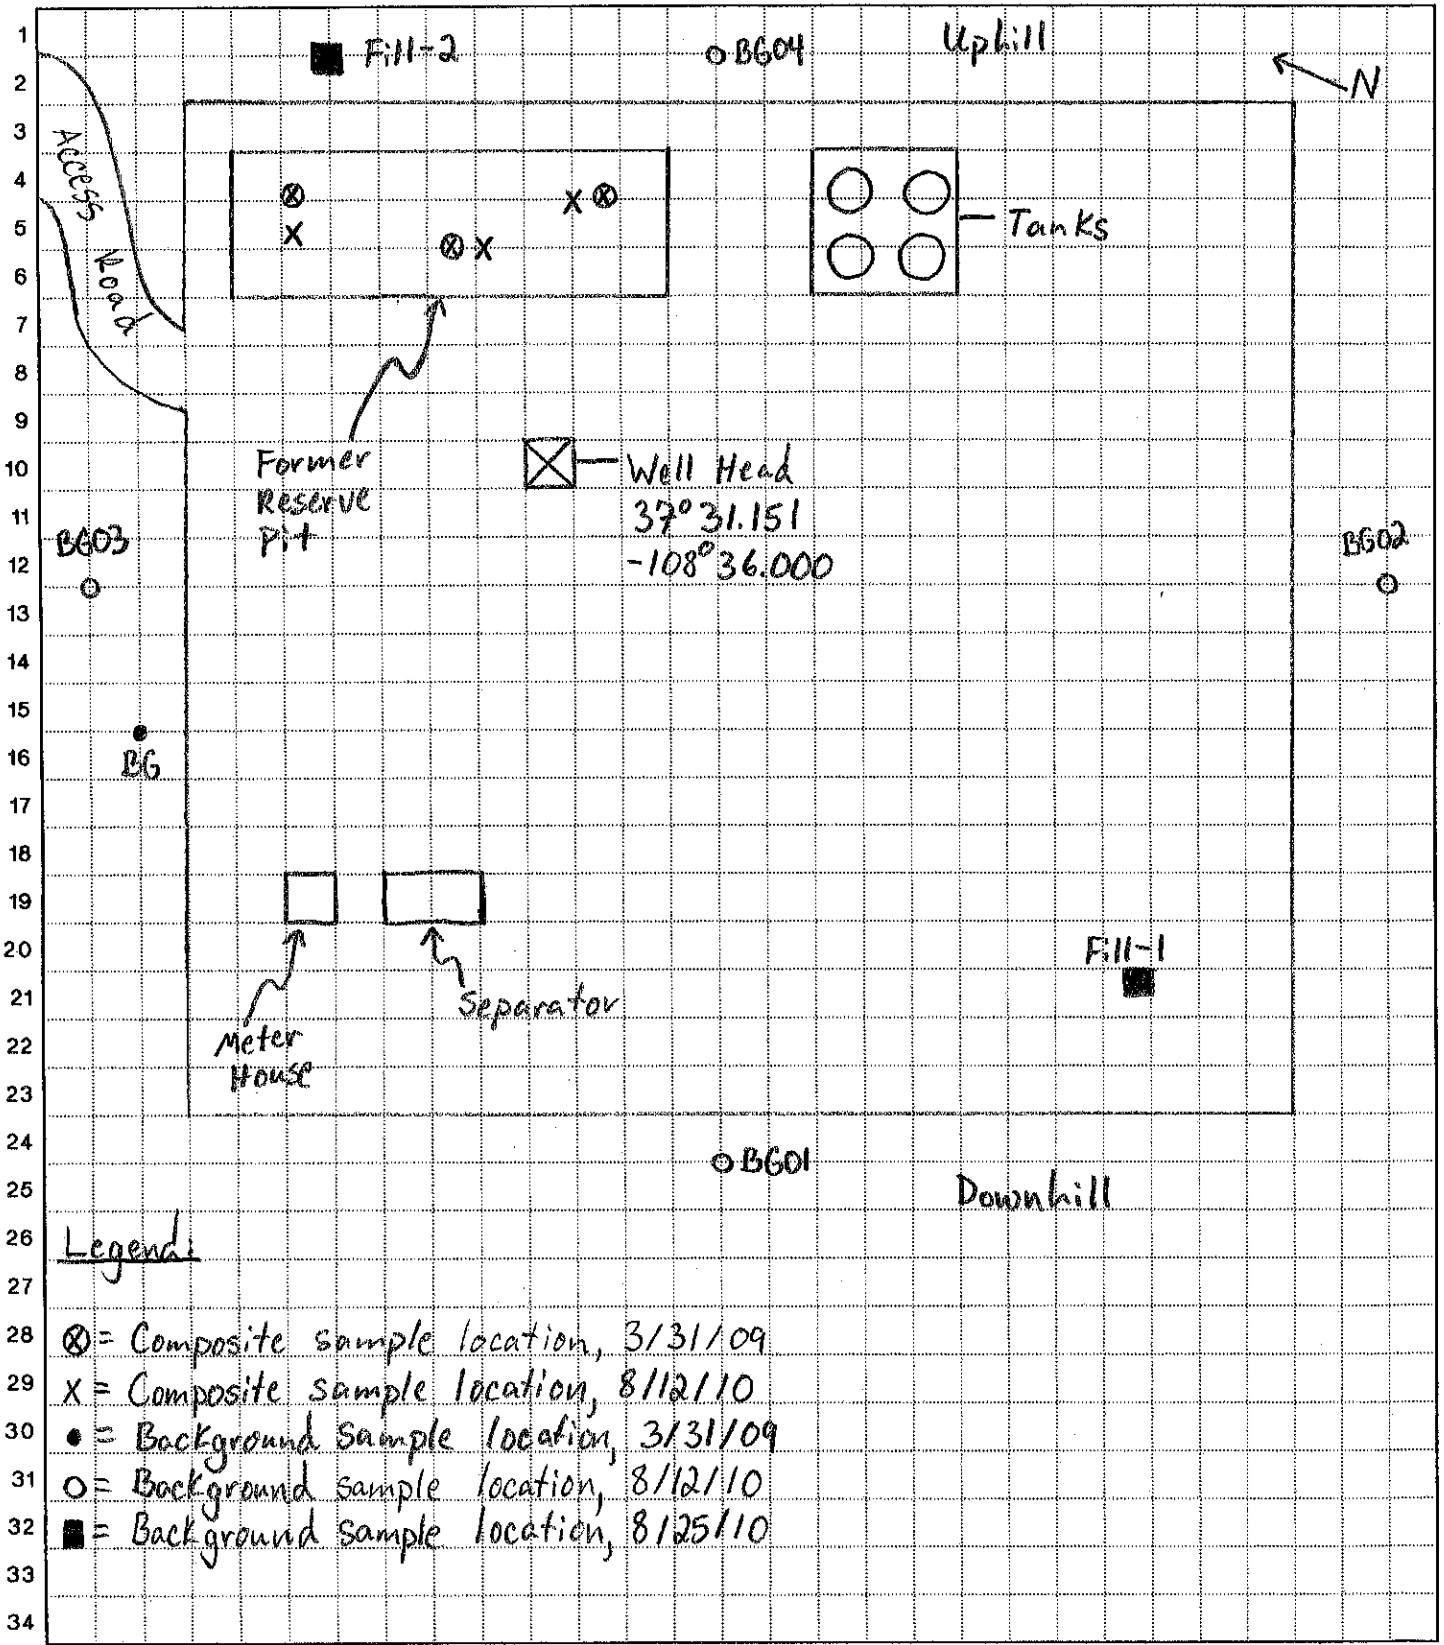 1
2
3
4
5
6
7
8
9
10
11
12
13
14
15
16
17
18
19
20
21
22
23
24
25
26
27
28
29
30
31
32
33
34
Fill-2
BG04
Uphill
N
Access Road
Tanks
Former
Reserve
Pit
Well Head
37° 31.151
-108° 36.000
BG03
BG02
BG
Fill-1
Separator
Meter
House
BG01
Downhill
Legend:
ⓧ = Composite sample location, 3/31/09
X = Composite sample location, 8/12/10
● = Background sample location, 3/31/09
○ = Background sample location, 8/12/10
■ = Background sample location, 8/25/10